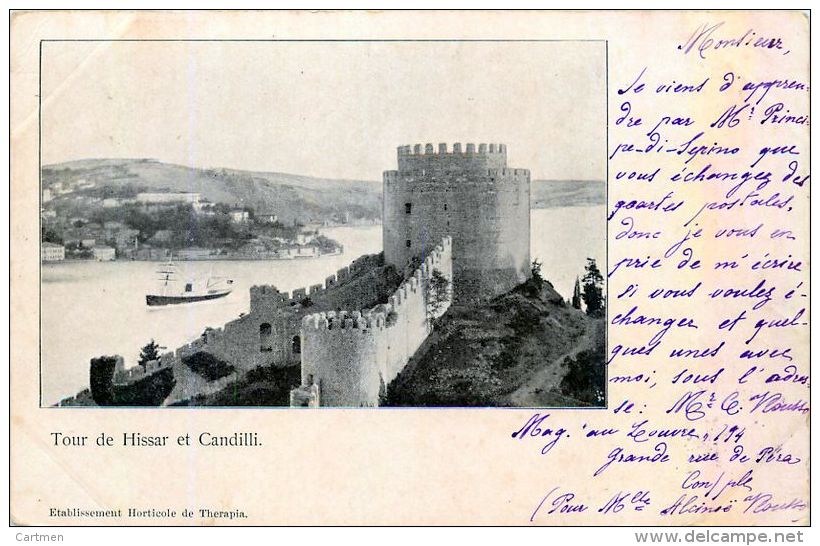 Monsieur,
Je viens d'appren-
dre par Mr Princi-
pe-di-Sepino que
vous échangez des
cartes postales,
donc je vous en
prie de m'écrire
si vous voulez é-
changer et quel-
ques unes avec
moi, sous l'adres-
se: Mr C. Rousso
Mag. au Louvre, 194
Grande rue de Péra
Con/ple
(Pour Mlle Alcinoë Rousso
Tour de Hissar et Candilli.
Etablissement Horticole de Therapia.
© Cartmen
http://www.delcampe.net